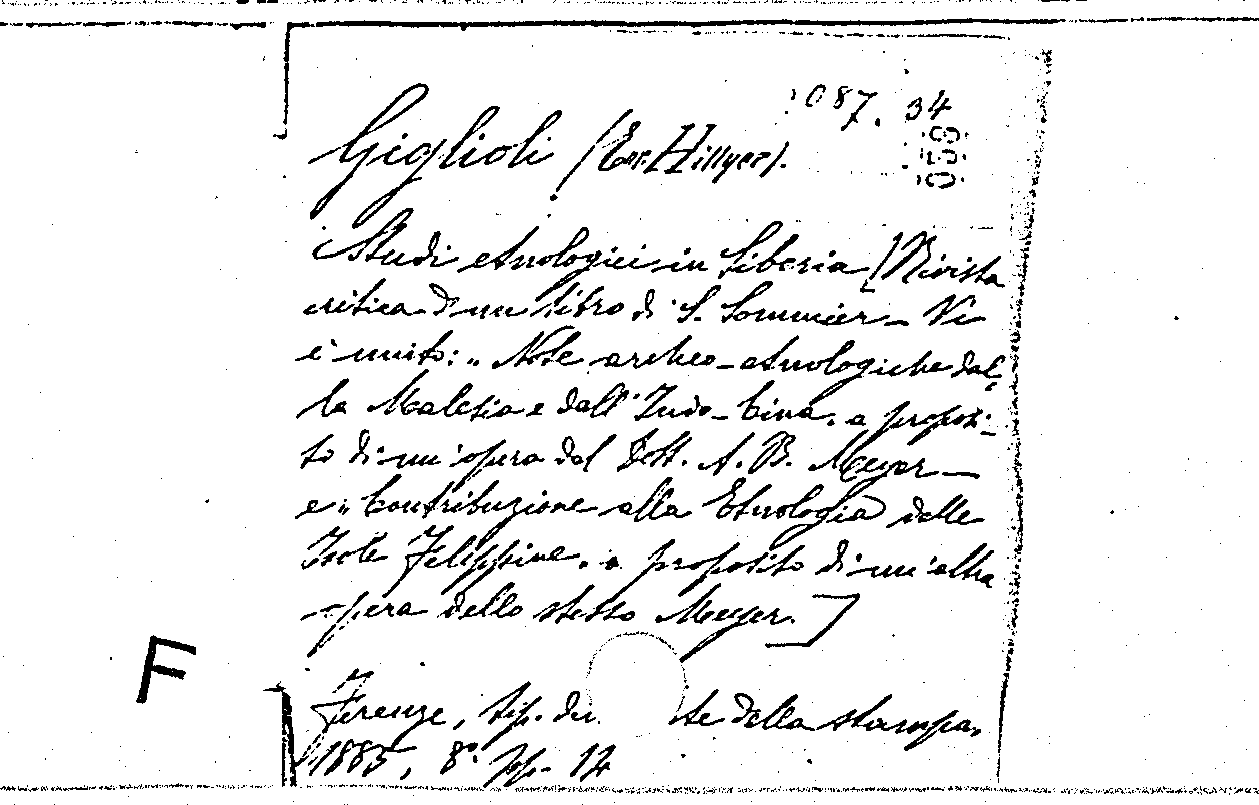 1087. 34
Giglioli (Enr. Hillyer).
059
Studi etnologici in Siberia [Rivista
critica d'un libro di S. Sommier – Vi
è unito: „ Note archeo-etnologiche dal=
la Malesia e dall'Indo-Cina, a proposi-
to di un'opera del Dott. A. B. Meyer –
e „ Contribuzione alla Etnologia delle
Isole Filippine, a proposito di un'altra
opera dello stesso Meyer.]
F
Firenze, tip. te della stampa,
1885, 8° pp. 12